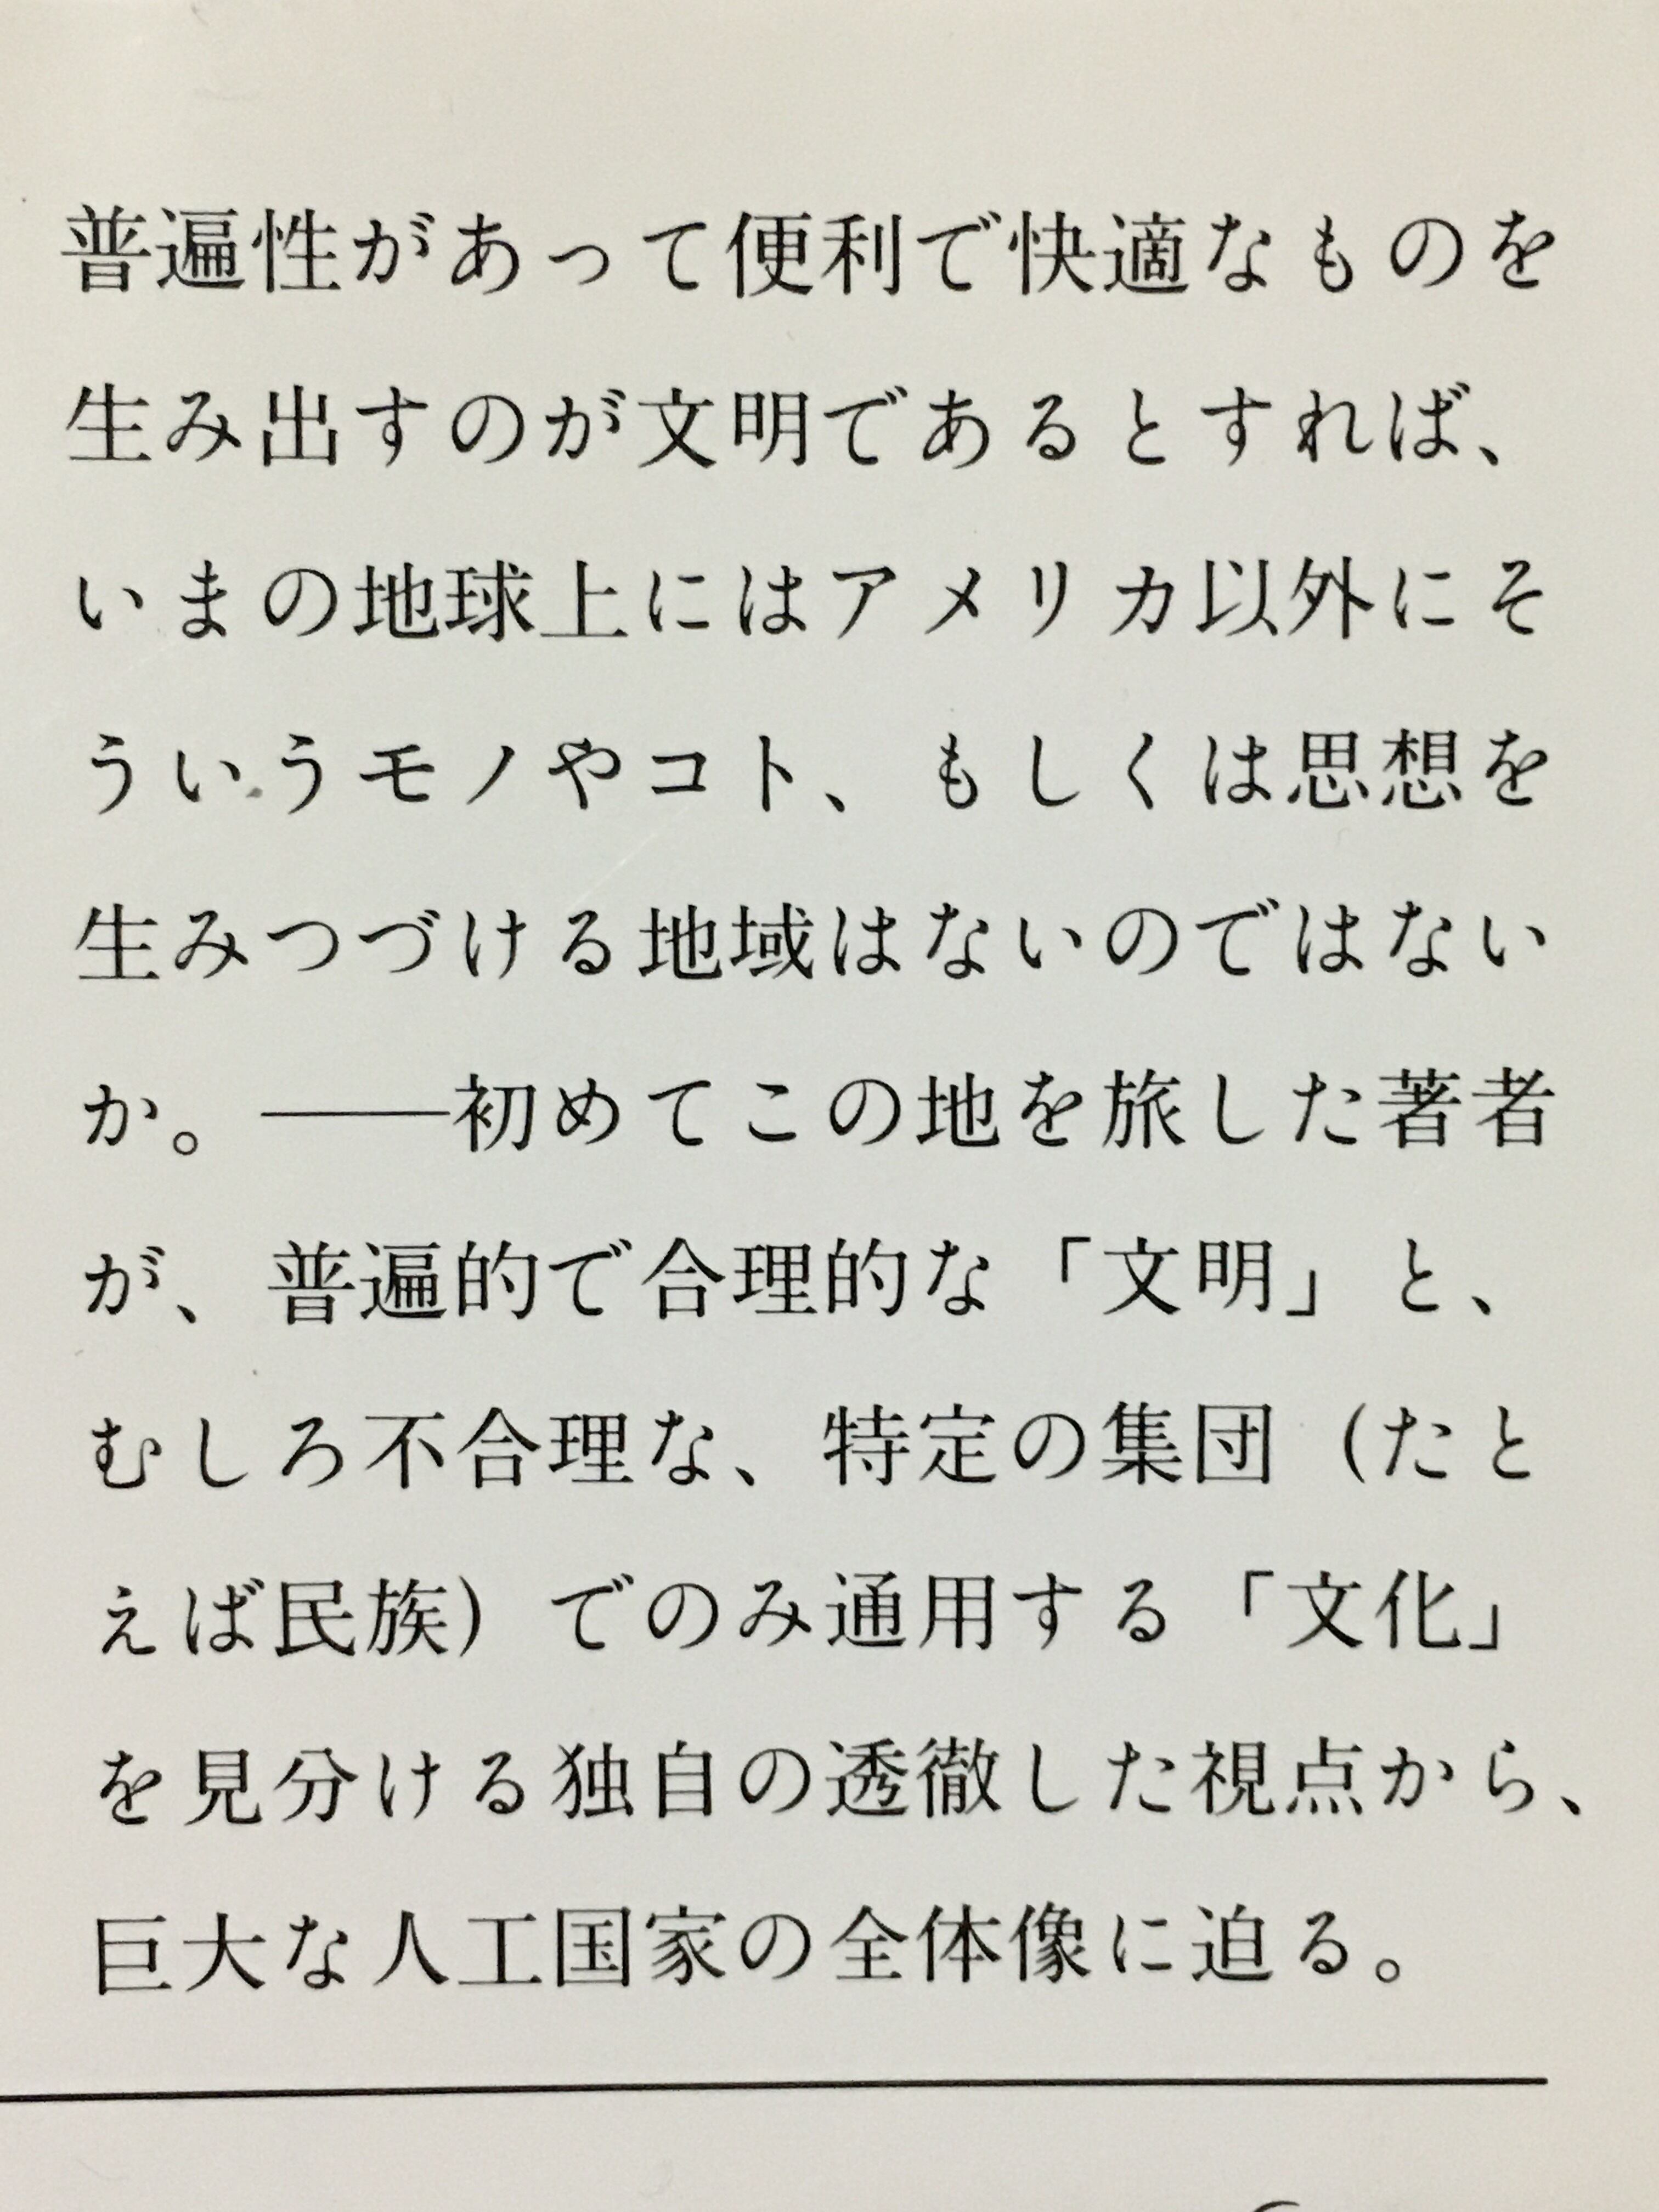 普遍性があって便利で快適なものを
生み出すのが文明であるとすれば、
いまの地球上にはアメリカ以外にそ
ういうモノやコト、もしくは思想を
生みつづける地域はないのではない
か。――初めてこの地を旅した著者
が、普遍的で合理的な「文明」と、
むしろ不合理な、特定の集団（たと
えば民族）でのみ通用する「文化」
を見分ける独自の透徹した視点から、
巨大な人工国家の全体像に迫る。